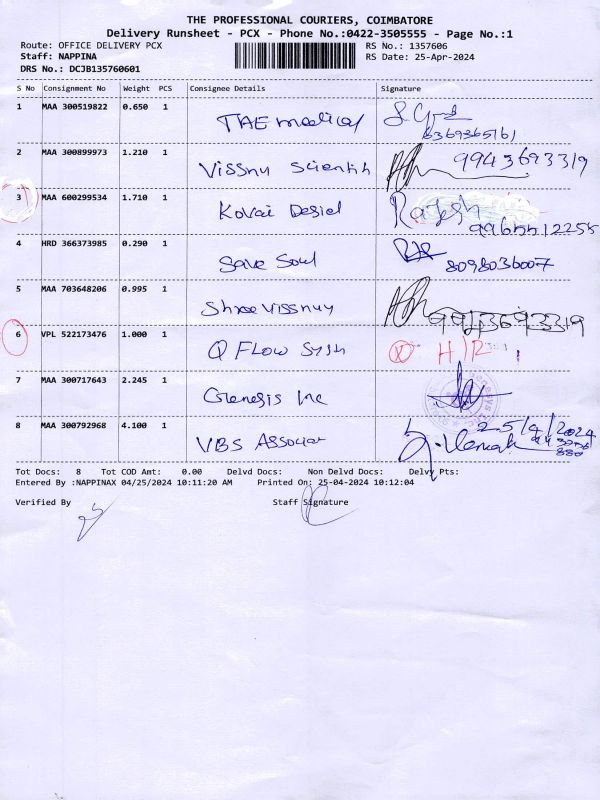 THE PROFESSIONAL COURIERS, COIMBATORE
Delivery Runsheet - PCX - Phone No.:0422-3505555 - Page No.:1
Route: OFFICE DELIVERY PCX RS No.: 1357606
Staff: NAPPINA RS Date: 25-Apr-2024
DRS No.: DCJB135760601
S No Consignment No Weight PCS Consignee Details Signature
1 MAA 300519822 0.650 1 TAE medical
8369365161
2 MAA 300899973 1.210 1 Vissnu Scientih 9943693319
3 MAA 600299534 1.710 1 Kovai Desiel Rajesh
9965512255
4 HRD 366373985 0.290 1 Save Soul 8098036007
5 MAA 703648206 0.995 1 Shree vissnuy 9943693319
6 VPL 522173476 1.000 1 Q FLOW Systh H/R
7 MAA 300717643 2.245 1 Genesis Inc
8 MAA 300792968 4.100 1 VBS Associat 25/4/2024
Tot Docs: 8 Tot COD Amt: 0.00 Delvd Docs: Non Delvd Docs: Delvy Pts:
Entered By :NAPPINAX 04/25/2024 10:11:20 AM Printed On: 25-04-2024 10:12:04
Verified By Staff Signature